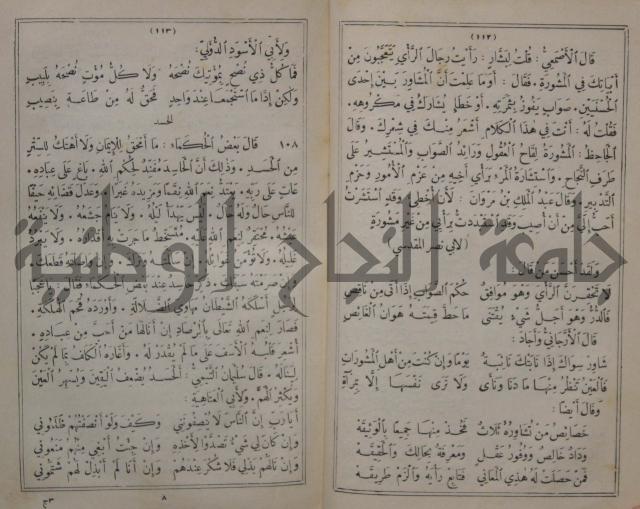 (١١٢)
قَالَ الْأَصْمَعِيُّ : قُلْتُ لِبَشَّارٍ : رَأَيْتُ رِجَالَ الرَّأْيِ يَتَعَجَّبُونَ مِنْ
أَبْيَاتِكَ فِي الْمَشُورَةِ . فَقَالَ : أَوَمَا عَلِمْتَ أَنَّ الْمُشَاوِرَ بَيْنَ إِحْدَى
الْحُسْنَيَيْنِ . صَوَابٍ يَفُوزُ بِثَمَرَتِهِ . أَوْ خَطَإٍ يُشَارَكُ فِي مَكْرُوهِهِ .
فَقُلْتُ لَهُ : أَنْتَ فِي هٰذَا الْكَلَامِ أَشْعَرُ مِنْكَ فِي شِعْرِكَ . وَقَالَ
الْجَاحِظُ : الْمَشُورَةُ لِقَاحُ الْعُقُولِ وَرَائِدُ الصَّوَابِ وَالْمُسْتَشِيرُ عَلَى
طَرَفِ النَّجَاحِ . وَاسْتِشَارَةُ الْمَرْءِ بِرَأْيِ أَخِيهِ مِنْ عَزْمِ الْأُمُورِ وَحَزْمِ
التَّدْبِيرِ . وَقَالَ عَبْدُ الْمَلِكِ بْنُ مَرْوَانَ : لَأَنْ أُخْطِئَ وَقَدِ اسْتَشَرْتُ
أَحَبُّ إِلَيَّ مِنْ أَنْ أُصِيبَ وَقَدِ اسْتَبْدَدْتُ بِرَأْيِي مِنْ غَيْرِ مَشُورَةٍ
(لابي نصر المقدسي)
وَلَقَدْ أَحْسَنَ مَنْ قَالَ :
لَا تَحْقِرَنَّ الرَّأْيَ وَهُوَ مُوَافِقٌ حُكْمَ الصَّوَابِ إِذَا أَتَى مِنْ نَاقِصِ
فَالدُّرُّ وَهُوَ أَجَلُّ شَيْءٍ يُقْتَنَى مَا حَطَّ قِيمَتَهُ هَوَانُ الْغَائِصِ
قَالَ الْأَرَّجَانِيُّ وَأَجَادَ :
شَاوِرْ سِوَاكَ إِذَا نَابَتْكَ نَائِبَةٌ يَوْمًا وَإِنْ كُنْتَ مِنْ أَهْلِ الْمَشُورَاتِ
فَالْعَيْنُ تَنْظُرُ مِنْهَا مَا دَنَا وَنَأَى وَلَا تَرَى نَفْسَهَا إِلَّا بِمِرْآةِ
وَقَالَ أَيْضًا :
خَصَائِصُ مَنْ تُشَاوِرُهُ ثَلَاثٌ فَخُذْ مِنْهَا جَمِيعًا بِالْوَثِيقَهْ
وِدَادٌ خَالِصٌ وَوُفُورُ عَقْلٍ وَمَعْرِفَةٌ بِحَالِكَ وَالْحَقِيقَهْ
فَمَنْ حَصَلَتْ لَهُ هٰذِي الْمَعَانِي فَتَابِعْ رَأْيَهُ وَالْزَمْ طَرِيقَهْ
(١١٣)
وَلِأَبِي الْأَسْوَدِ الدُّؤَلِيِّ :
فَمَا كُلُّ ذِي نُصْحٍ بِمُؤْتِيكَ نُصْحَهُ وَلَا كُلُّ مُؤْتٍ نُصْحَهُ بِلَبِيبِ
وَلٰكِنْ إِذَا مَا اسْتَجْمَعَا عِنْدَ وَاحِدٍ فَحُقَّ لَهُ مِنْ طَاعَةٍ بِنَصِيبِ
الحسد
١٠٨ قَالَ بَعْضُ الْحُكَمَاءِ : مَا أَمْحَقَ لِلْإِيمَانِ وَلَا أَهْتَكَ لِلسِّتْرِ
مِنَ الْحَسَدِ . وَذٰلِكَ أَنَّ الْحَاسِدَ مُعَانِدٌ لِحُكْمِ اللهِ . بَاغٍ عَلَى عِبَادِهِ .
عَاتٍ عَلَى رَبِّهِ . يَعْتَدُّ نِعَمَ اللهِ نِقَمًا وَمَزِيدَهُ غِيَرًا وَعَدْلَ قَضَائِهِ حَيْفًا
لِلنَّاسِ حَالٌ وَلَهُ حَالٌ . لَيْسَ يَهْدَأُ لَيْلُهُ . وَلَا يَنَامُ جَشَعُهُ . وَلَا يَنْفَعُهُ
عَيْشُهُ . مُحْتَقِرٌ لِنِعَمِ اللهِ عَلَيْهِ . مُتَسَخِّطٌ مَا جَرَتْ بِهِ أَقْدَارُهُ . وَلَا يَبْرُدُ
غَلِيلُهُ . وَلَا تُؤْمَنُ غَوَائِلُهُ . إِنْ سَالَمْتَهُ وَتَرَكَ . وَإِنْ وَاصَلْتَهُ قَطَعَكَ .
وَإِنْ صَرَمْتَهُ سَبَقَكَ . ذُكِرَ حَسَدٌ عِنْدَ بَعْضِ الْحُكَمَاءِ فَقَالَ :
أَسْلَكَهُ الشَّيْطَانُ مَهَاوِيَ الضَّلَالَةِ . وَأَوْرَدَهُ قُحَمَ الْهَلَكَةِ .
فَصَارَ لِنِعَمِ اللهِ تَعَالَى بِالْمِرْصَادِ إِنْ أَنَالَهَا مَنْ أَحَبَّ مِنْ عِبَادِهِ .
أَشْعَرَ قَلْبَهُ الْأَسَفَ عَلَى مَا لَمْ يُقْدَرْ لَهُ . وَأَغَارَهُ الْكَلَفُ بِمَا لَمْ يَكُنْ
لِيَنَالَهُ . قَالَ سُلَيْمَانُ التَّيْمِيُّ : الْحَسَدُ يُضْعِفُ الْيَقِينَ وَيُسْهِرُ الْعَيْنَ
وَيُكْثِرُ الْهَمَّ . وَلِأَبِي الْعَتَاهِيَةِ :
أَيَا رَبِّ إِنَّ النَّاسَ لَا يُنْصِفُونَنِي وَكَيْفَ وَلَوْ أَنْصَفْتُهُمْ ظَلَمُونِي
وَإِنْ كَانَ لِي شَيْءٌ تَصَدَّوْا لِأَخْذِهِ وَإِنْ جِئْتُ أَبْغِي مِنْهُمُ مَنَعُونِي
وَإِنْ نَالَهُمْ بَذْلِي فَلَا شُكْرَ عِنْدَهُمْ وَإِنْ أَنَا لَمْ أَبْذُلْ لَهُمْ شَتَمُونِي
٨
ج٣
جامعة النجاح الوطنية